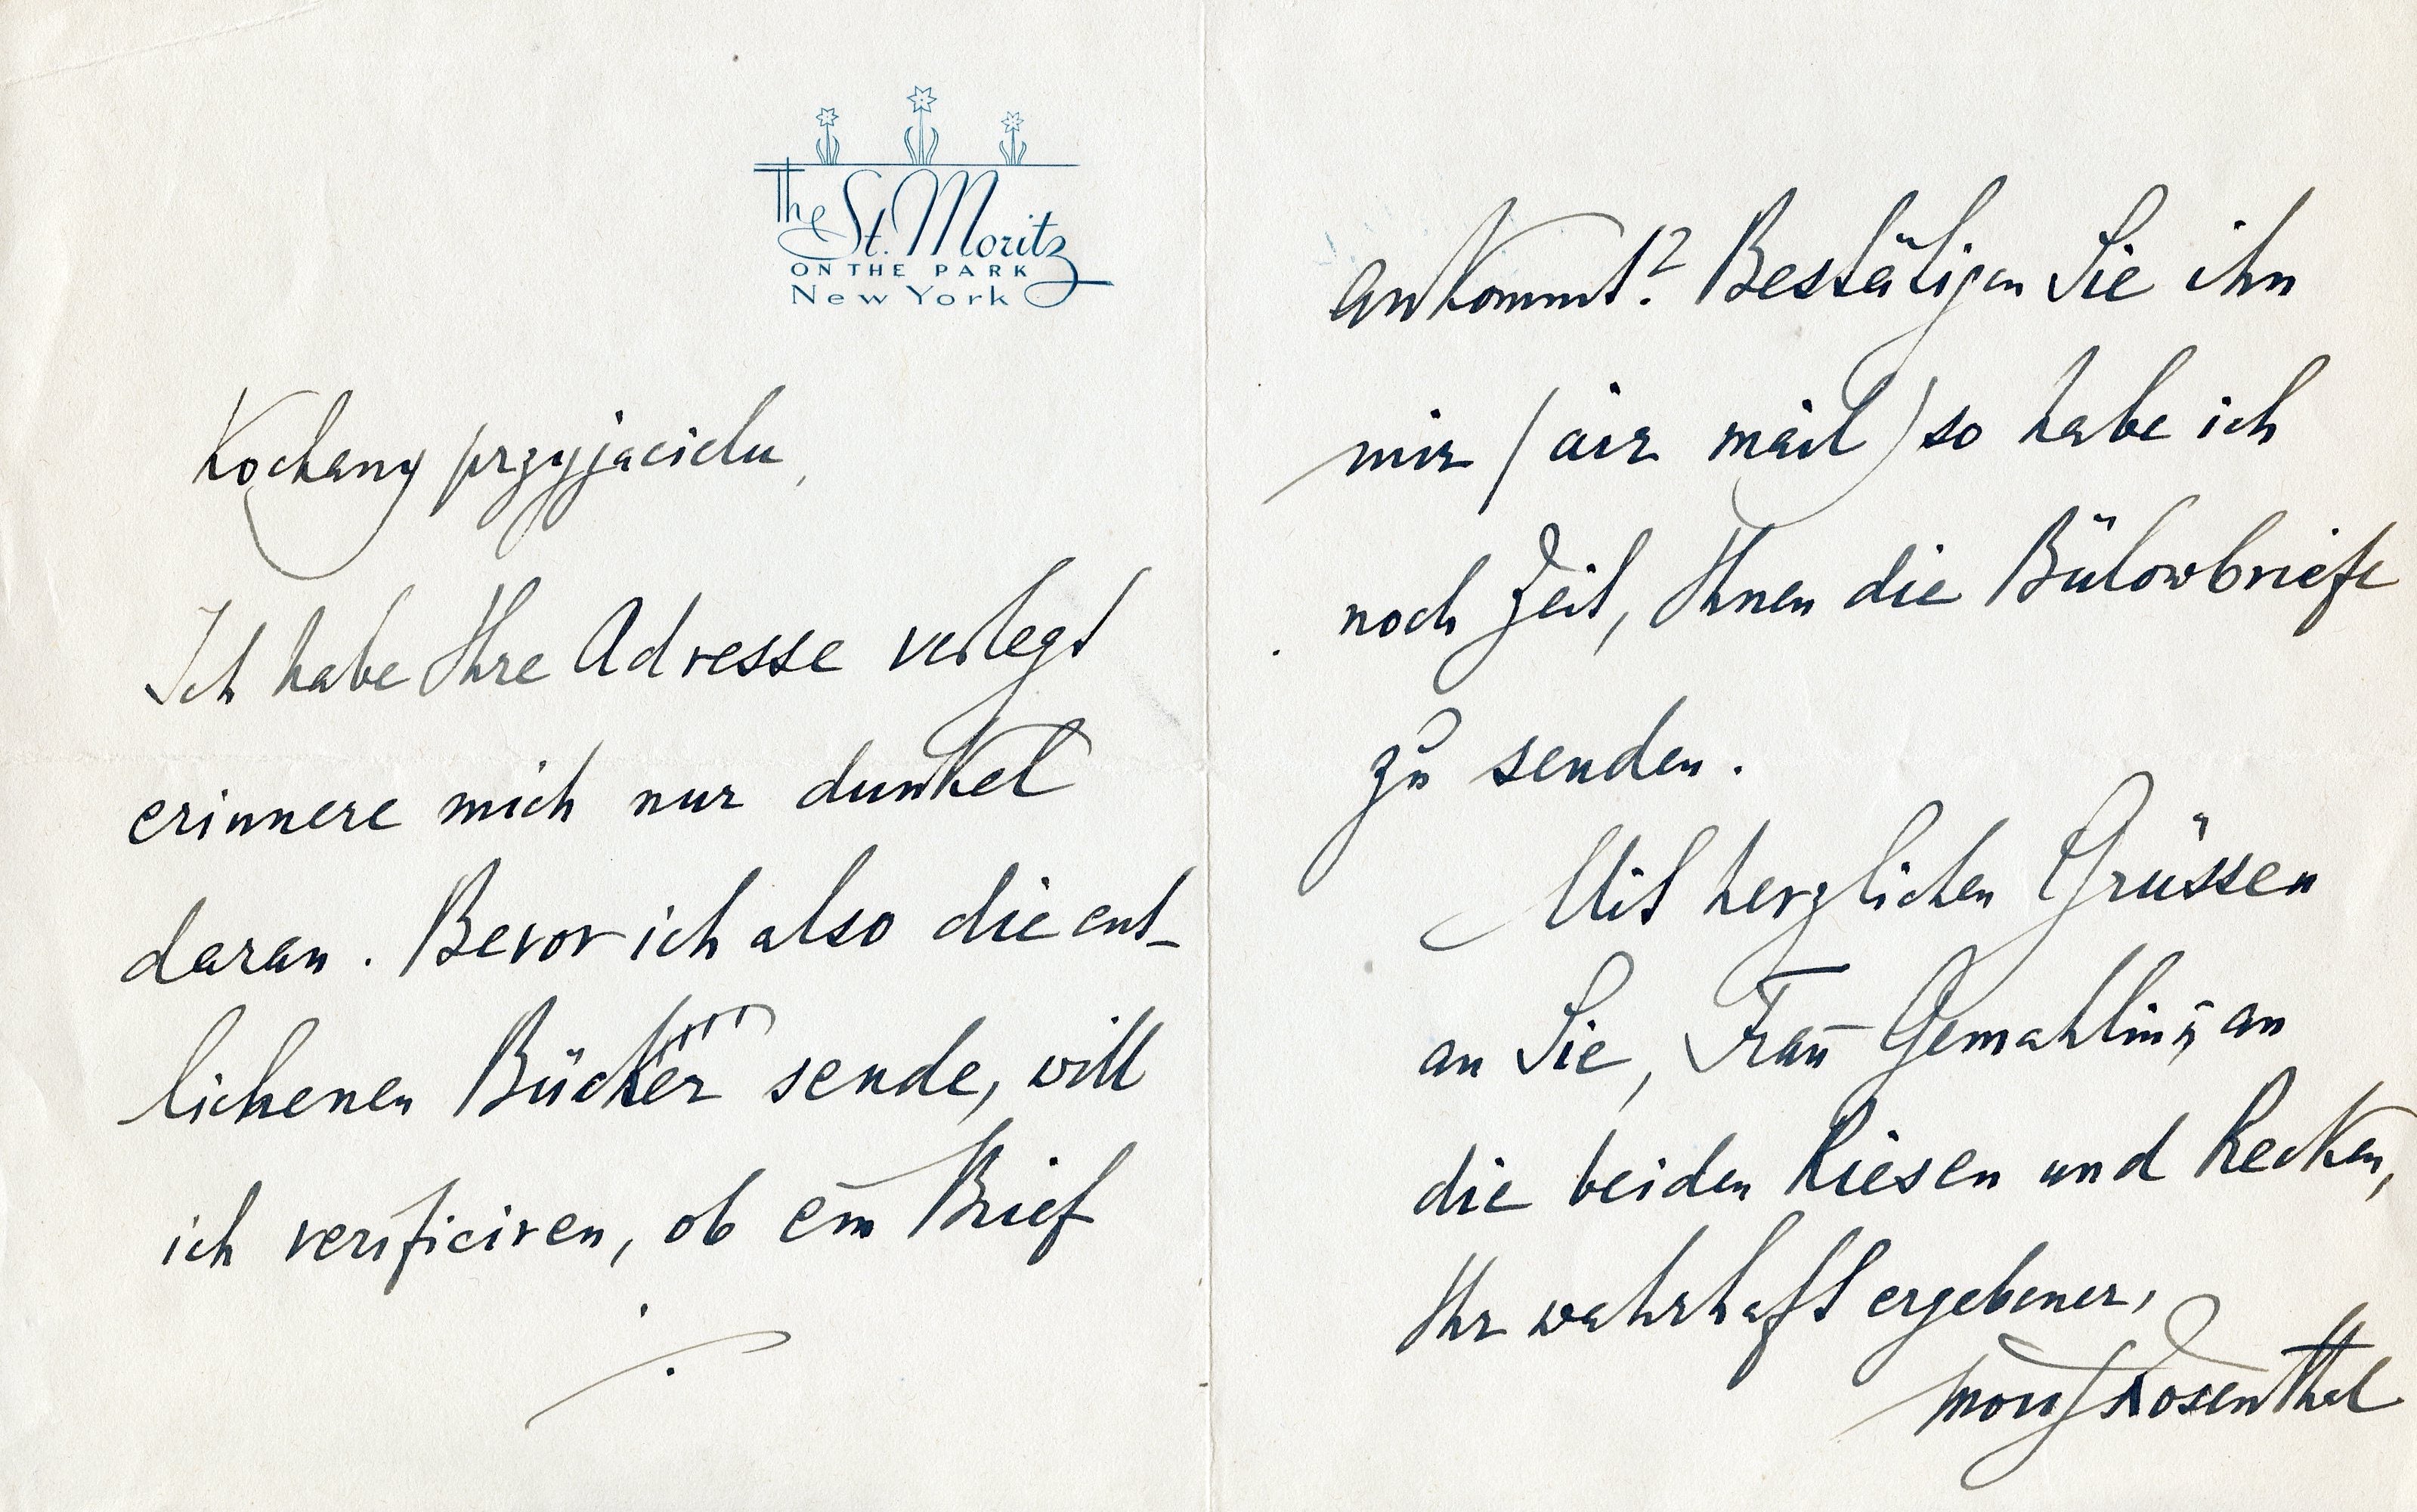 The St. Moritz
ON THE PARK
New York
Kochany przyjacielu,
Ich habe Ihre Adresse verlegt
erinnere mich nur dunkel
daran. Bevor ich also die ent-
lichenen Bücher sende, will
ich verificiren, ob ein Brief
ankommt? Bestätigen Sie ihn
mir (air mail) so habe ich
noch Zeit, Ihnen die Bülowbriefe
zu senden.
Mit herzlichen Grüssen
an Sie, Frau Gemahlin u. an
die beiden Riesen und Recken,
Ihr wahrhaft ergebener,
Moriz Rosenthal